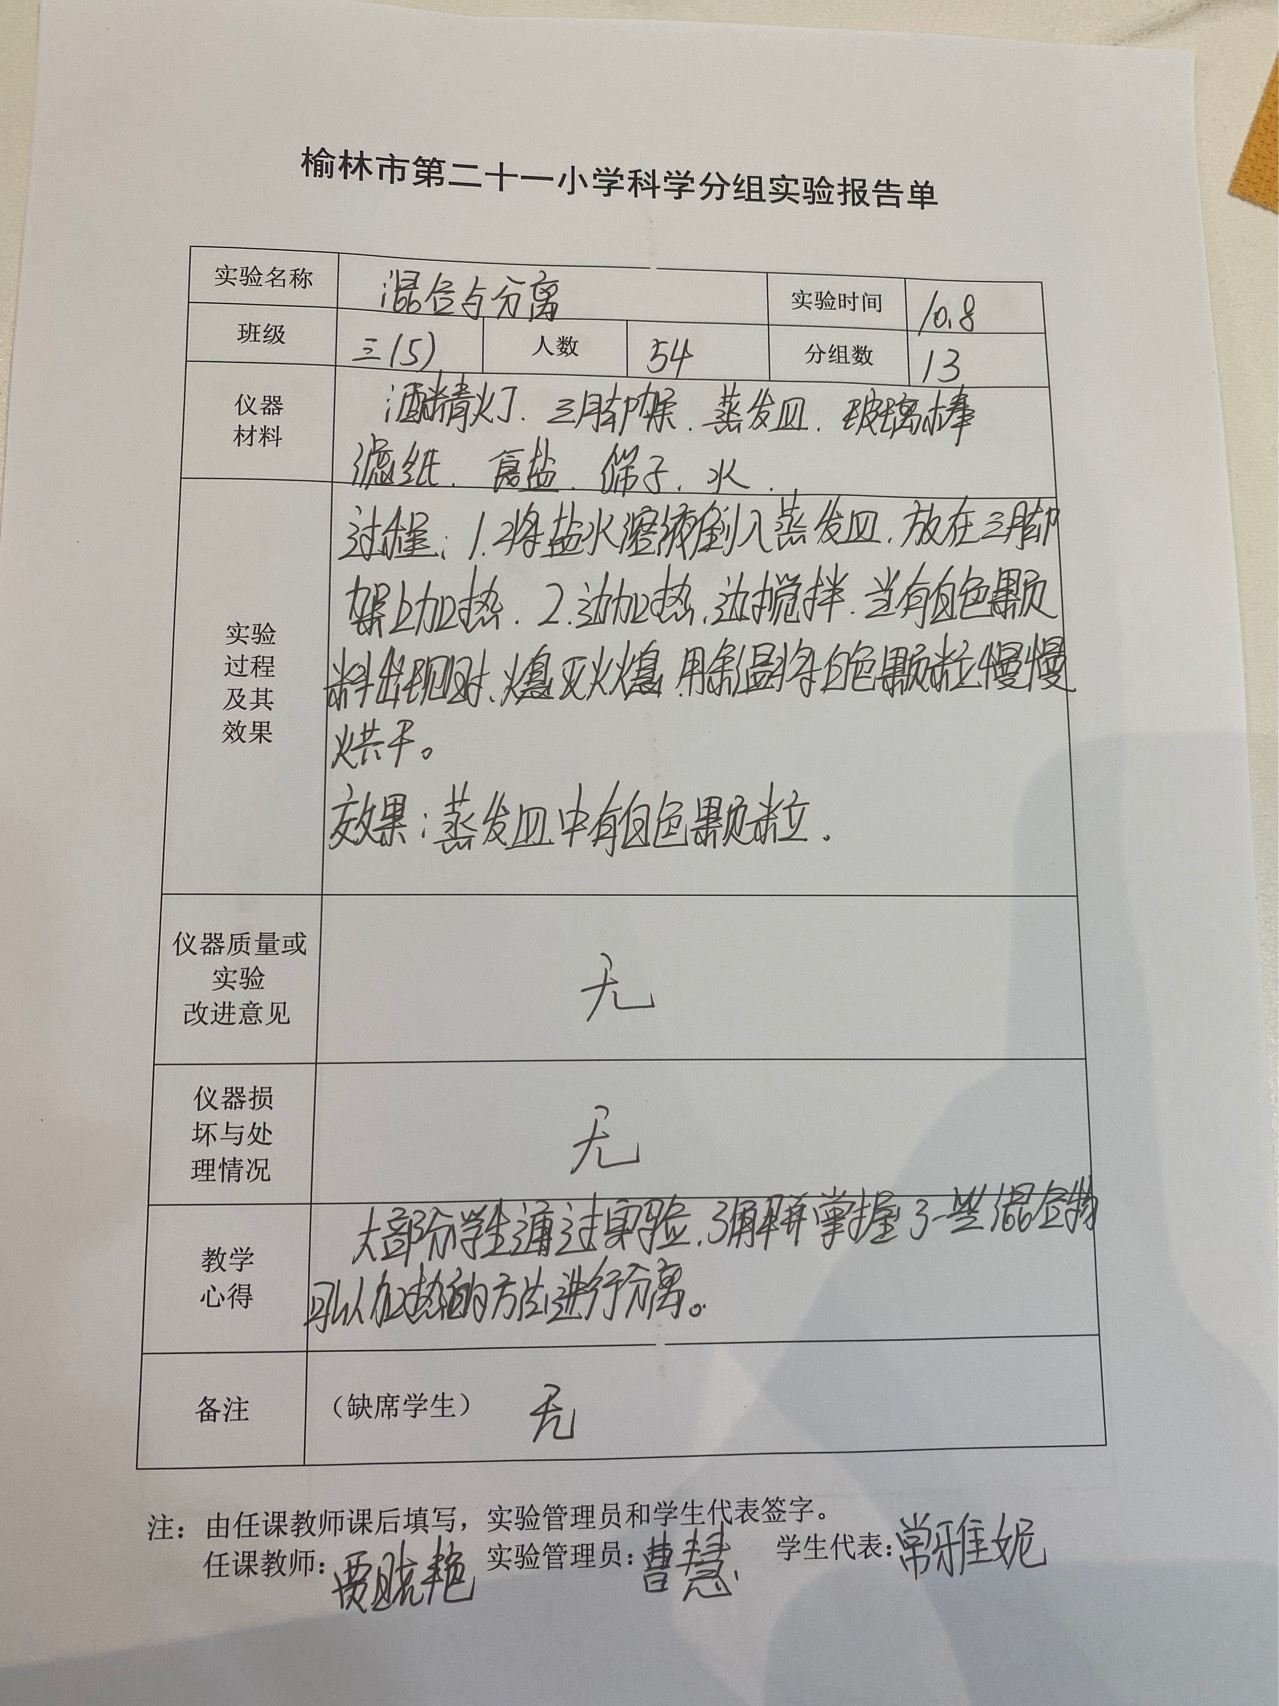 榆林市第二十一小学科学分组实验报告单
实验名称 混合与分离 实验时间 10.8
班级 三(5) 人数 54 分组数 13
仪器
材料
酒精灯、三脚架、蒸发皿、玻璃棒
滤纸、食盐、筛子、水.
实验
过程
及其
效果
过程:1.将盐水溶液倒入蒸发皿,放在三脚
架上加热.2.边加热,边搅拌.当有白色颗
料出现时、熄灭火熄,用余温将白色颗粒慢慢
烘干。
效果:蒸发皿中有白色颗粒.
仪器质量或
实验
改进意见
无
仪器损
坏与处
理情况
无
教学
心得
大部分学生通过实验,了解并掌握了一些混合物
可以加热的方法进行分离。
备注 (缺席学生) 无
注:由任课教师课后填写,实验管理员和学生代表签字。
任课教师:贾晓艳 实验管理员:曹慧 学生代表:常雅妮